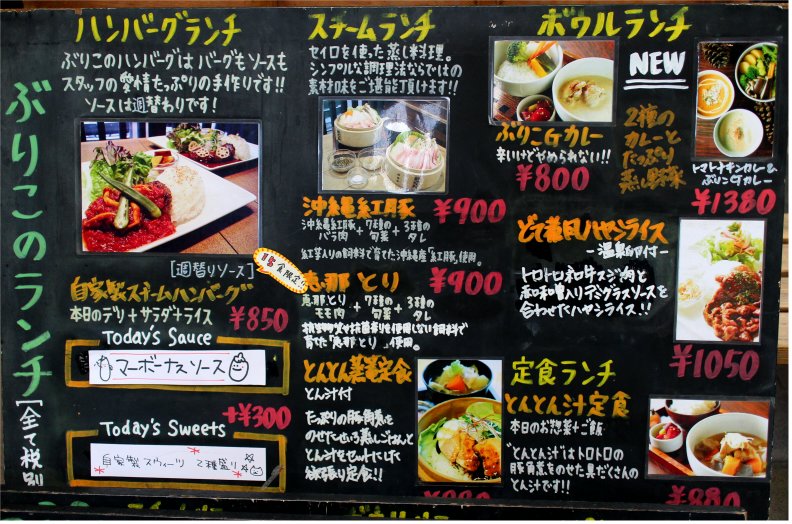 ぶりこのランチ
[全て税別]
ハンバーグランチ
ぶりこのハンバーグはバーグもソースも
スタッフの愛情たっぷりの手作りです!!
ソースは週替わりです!
[週替りソース]
自家製スチームハンバーグ
本日のデリ+サラダ+ライス
¥850
Today's Sauce
マーボーナスソース
+¥300
Today's Sweets
自家製スウィーツ 2種盛り
スチームランチ
セイロを使った蒸し料理。
シンプルな調理法ならではの
素材の味をご堪能頂けます!!
沖縄紅豚
¥900
バラ肉 + 旬菜 + タレ
紅芋入りの飼料で育てた沖縄産"紅豚"使用。
食限定!!
恵那とり
¥900
恵那とり
モモ肉 + 旬菜 + タレ
育てた"恵那とり"使用。
とんとん蒸篭定食
とん汁付
たっぷりの豚角煮を
のせたせいろ蒸しごはんと
とん汁をセットにした
欲張り定食!!
ボウルランチ
NEW
ぶりこGカレー
辛いけどやめられない!!
¥800
2種の
カレーと
たっぷり
蒸し野菜
トマトチキンカレー&
ぶりこGカレー
¥1380
どて煮風ハヤシライス
-温泉卵付-
トロトロ和牛スジ肉と
赤味噌入りデミグラスソースを
合わせたハヤシライス!!
¥1050
定食ランチ
とんとん汁定食
本日のお惣菜+ご飯
"とんとん汁"はトロトロの
豚角煮をのせた具だくさんの
とん汁です!!
¥880